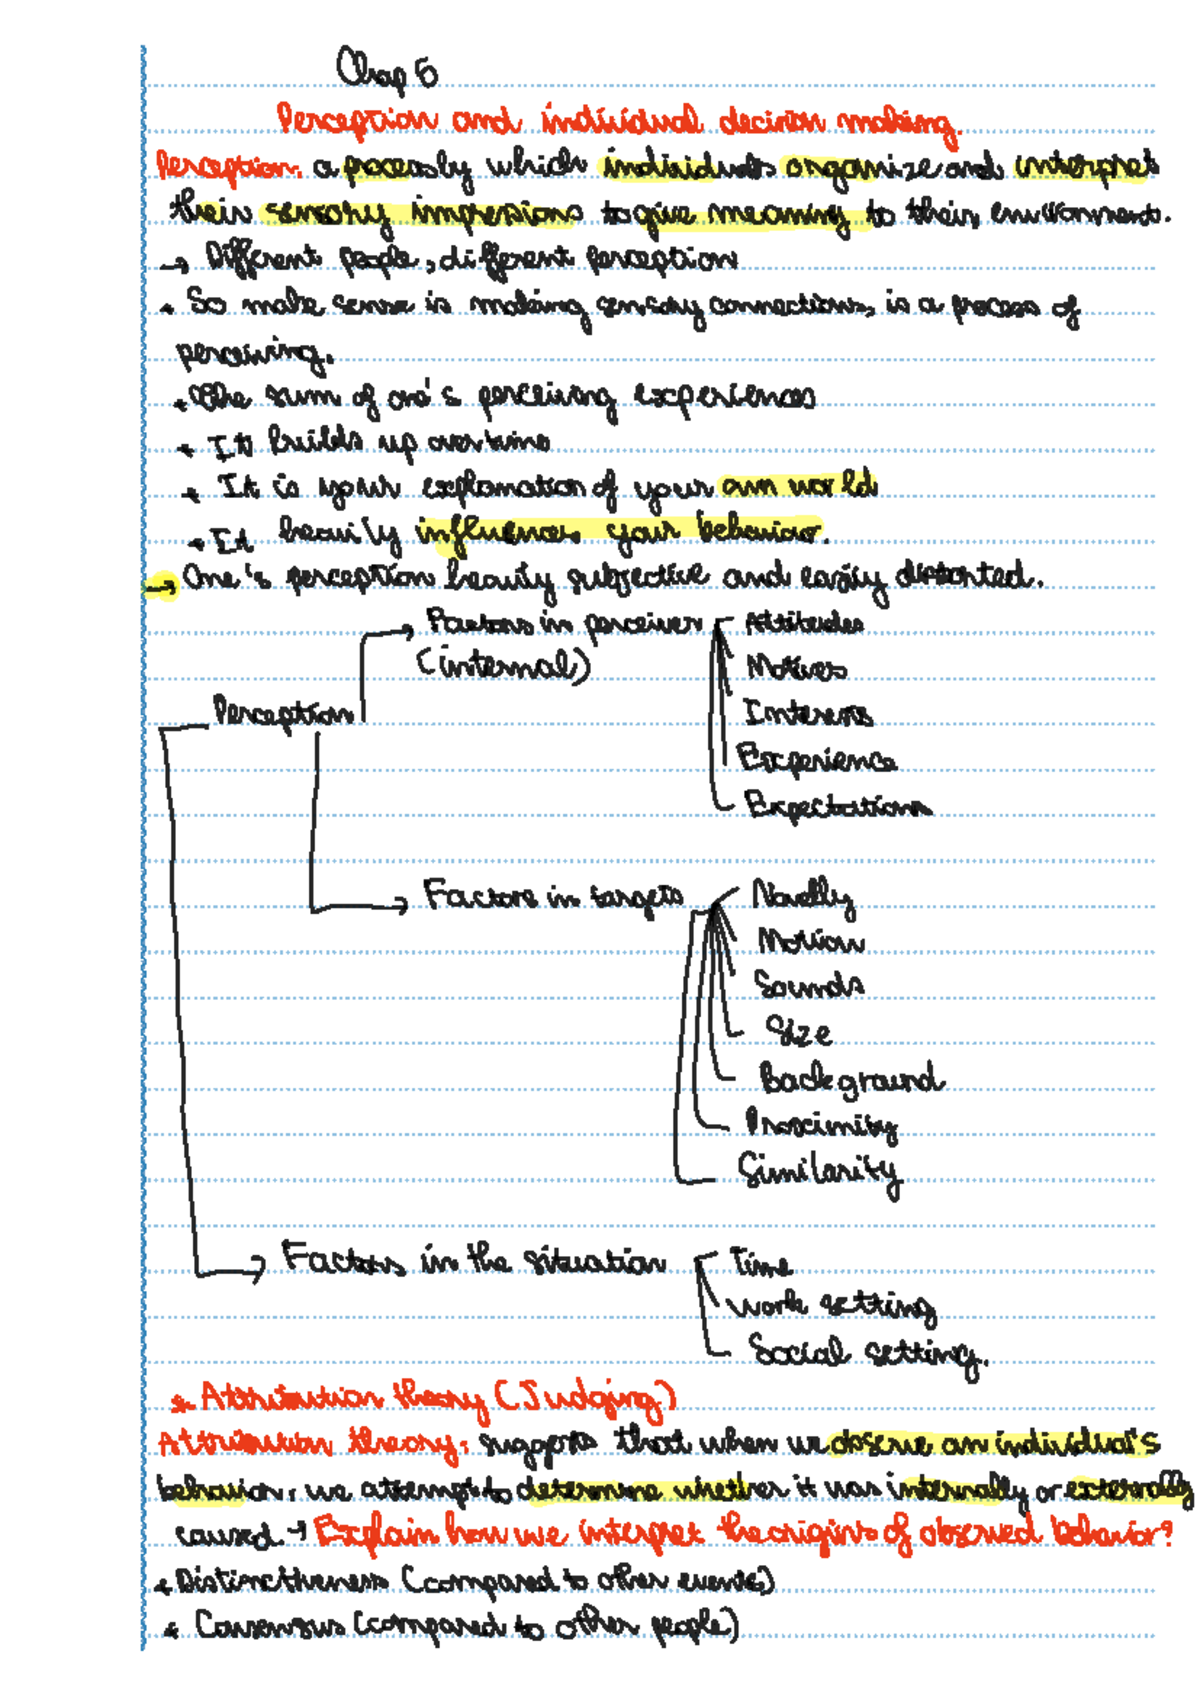 Chap 5
Perception and individual decision making.
Perception: a process by which individuals organize and interpret
their sensory impressions to give meaning to their environment.
→ Different people, different perception
+ So make sense is making sensory connections, is a process of
perceiving.
+ The sum of one's perceiving experiences
+ It builds up overtime
+ It is your explanation of your own world
+ It heavily influences your behavior.
→ One's perception heavily subjective and easily distorted.
→ Factors in perceiver Attitudes
(internal) Motives
Perception Interests
Experience
Expectations
→ Factors in targets Novelty
Motion
Sounds
Size
Background
Proximity
Similarity
→ Factors in the situation Time
Work setting
Social setting.
* Attribution theory (Judging)
Attribution theory: suggests that when we observe an individual's
behavior, we attempt to determine whether it was internally or externally
caused. → Explain how we interpret the origins of observed behavior?
+ Distinctiveness (compared to other events)
+ Consensus (compared to other people)